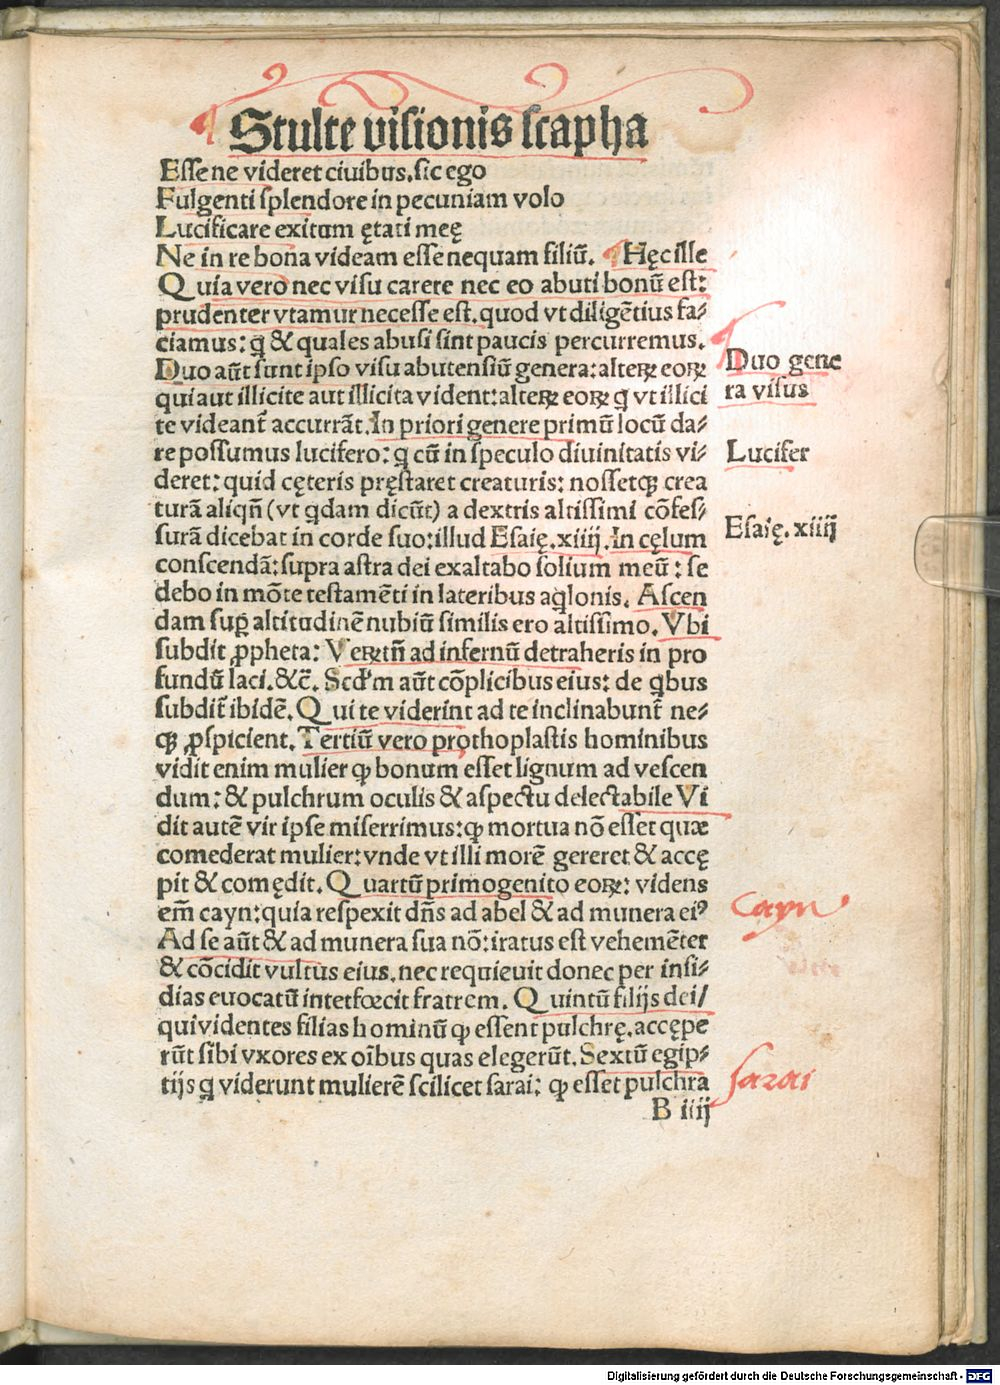 Stulte visionis scapha
Esse ne videret ciuibus, sic ego
Fulgenti splendore in pecuniam volo
Lucificare exitum ętati meę
Ne in re bona videam esse nequam filiū. Hęc ille
Quia vero nec visu carere nec eo abuti bonū est:
prudenter vtamur necesse est. quod vt diligētius fa⸗
ciamus: q̄ & quales abusi sint paucis percurremus.
Duo aūt sunt ipso visu abutensiū genera: alteꝝ eoꝝ
qui aut illicite aut illicita vident: alteꝝ eoꝝ q̄ vt illici
te videant̄ accurrāt. In priori genere primū locū da⸗
re possumus lucifero: q̄ cū in speculo diuinitatis vi⸗
deret: quid cęteris pręstaret creaturis: nossetqꝫ crea
turā aliqn̄ (vt q̄dam dicūt) a dextris altissimi cōfes⸗
surā dicebat in corde suo: illud Esaię. xiiij. In cęlum
conscendā: supra astra dei exaltabo solium meū: se
debo in mōte testamēti in lateribus aq̄lonis. Ascen
dam sup̄ altitudinē nubiū similis ero altissimo. Vbi
subdit ꝓpheta: Veꝝtn̄ ad infernū detraheris in pro
fundū laci. &c̄. Scd'm aūt cōplicibus eius: de q̄bus
subdit̄ ibidē. Qui te viderint ad te inclinabunt̄ ne⸗
qꝫ ꝓspicient. Tertiū vero prothoplastis hominibus
vidit enim mulier ꝙ bonum esset lignum ad vescen
dum: & pulchrum oculis & aspectu delectabile Vi
dit autē vir ipse miserrimus: ꝙ mortua nō esset quæ
comederat mulier: vnde vt illi morē gereret & accę
pit & comędit. Quartū primogenito eoꝝ: videns
em̄ cayn: quia respexit dn̄s ad abel & ad munera eiꝰ
Ad se aūt & ad munera sua nō: iratus est vehemēter
& cōcidit vultus eius. nec requieuit donec per insi⸗
dias euocatū interfœcit fratrem. Quintū filijs dei/
qui videntes filias hominū ꝙ essent pulchrę. accępe
rūt sibi vxores ex oībus quas elegerūt. Sextū egip⸗
tijs q̄ viderunt mulierē scilicet sarai: ꝙ esset pulchra
B iiij
Duo gene
ra visus
Lucifer
Esaię. xiiij
Cayn
sarai
Digitalisierung gefördert durch die Deutsche Forschungsgemeinschaft - DFG